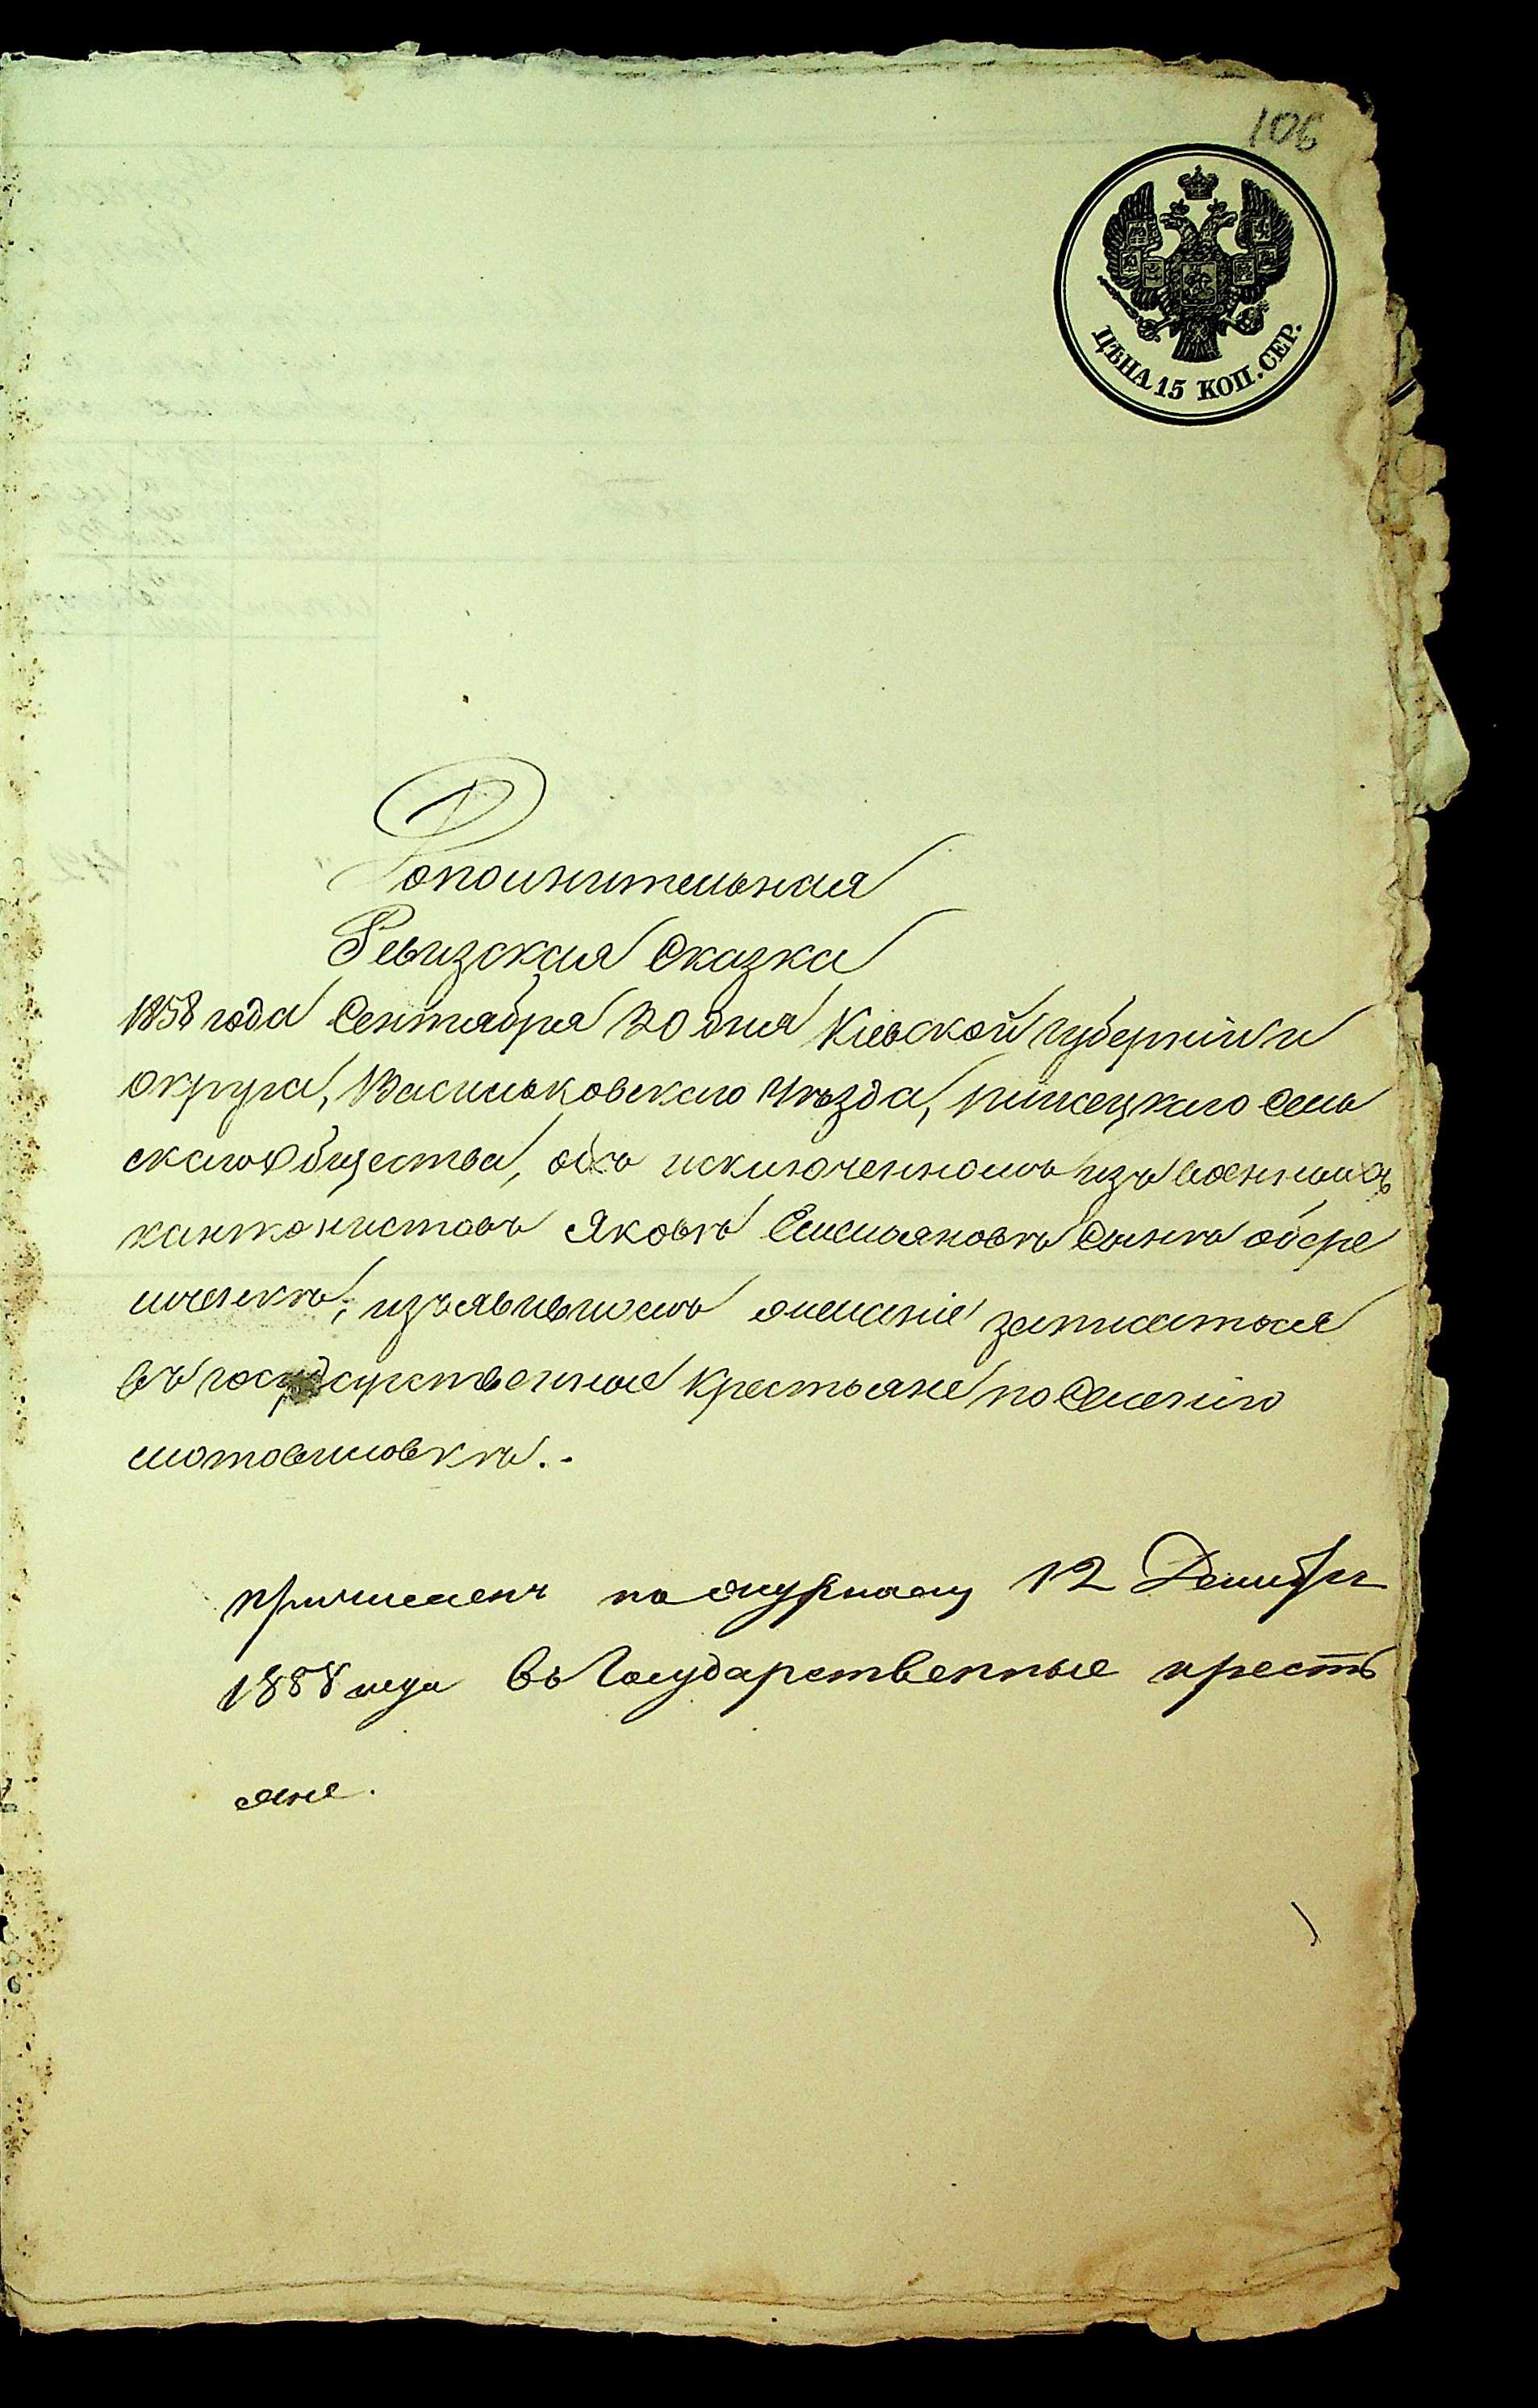 106
ЦѢНА 15 КОП. СЕР.
Дополнительная
Ревизская Сказка
1858 года Сентября 20 дня Кіевской губерніи и
округа, Васильковского Уѣзда, Сель
скаго Общества, объ исключенномъ изъ военныхъ
кантонистовъ Яковѣ Емельяновѣ Сынѣ
изъявившемъ желаніе записаться
въ государственные Крестьяне по Селенію
мотовиловкѣ.
Причисленъ по журналу 12 Декабря
1858 года въ Государственные кресть
яне.